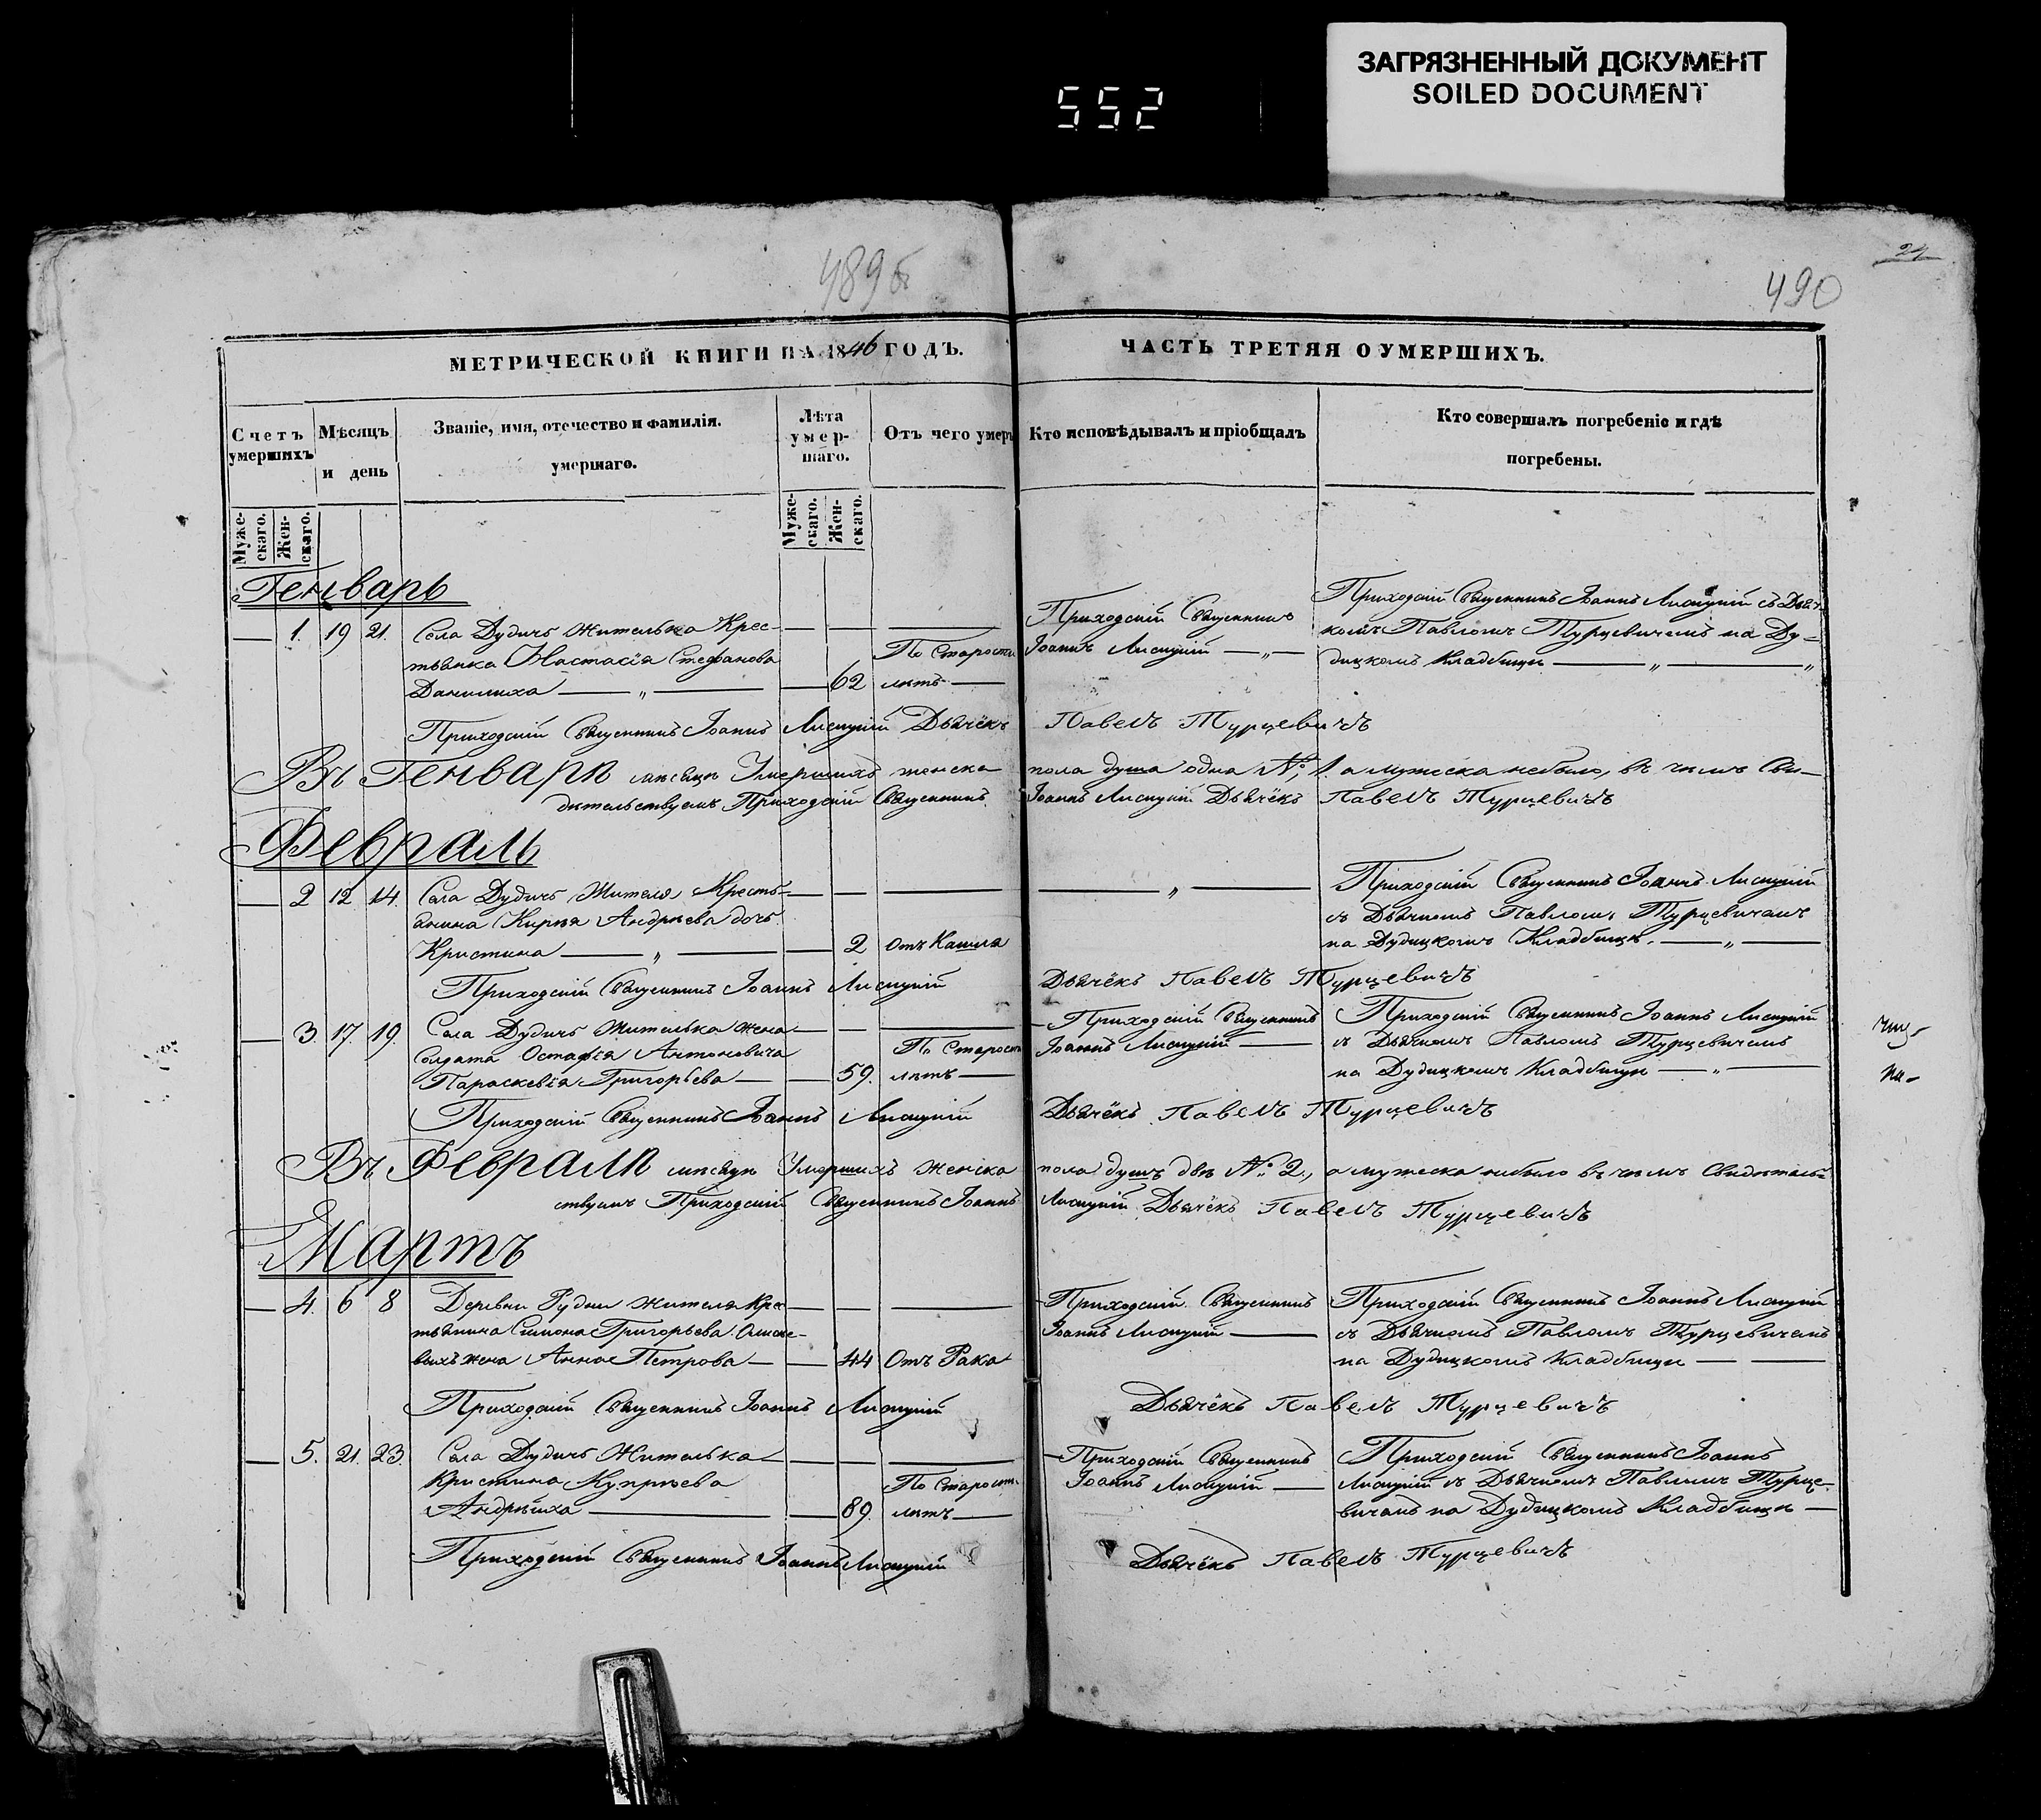 ЗАГРЯЗНЕННЫЙ ДОКУМЕНТ
SOILED DOCUMENT
552
24
489б
490
МЕТРИЧЕСКОЙ КНИГИ НА 1846 ГОДЪ.
ЧАСТЬ ТРЕТЯЯ О УМЕРШИХЪ.
Счетъ умершихъ
Мѣсяцъ и день
Званіе, имя, отечество и фамилія.
умершаго.
Лѣта
умер-
шаго.
Отъ чего умеръ
Кто исповѣдывалъ и пріобщалъ
Кто совершалъ погребеніе и гдѣ
погребены.
Муже-
скаго.
Жен-
скаго.
Муже-
скаго.
Жен-
скаго.
Генварь
1. 19 21. Села Дудичъ жителька Крес-
тьянка Настасія Стефанова
Данилиха — „ — 62
По Старости
лѣтъ
Приходскій Священникъ
Іоаннъ Лисицкій — „ —
Приходскій Священникъ Іоаннъ Лисицкій съ Дьяч-
комъ Павломъ Турцевичемъ на Ду-
дицкомъ Кладбищѣ — „ — „
Приходскій Священникъ Іоаннъ Лисицкій Дьячёкъ Павелъ Турцевичъ
Въ Генварѣ мѣсяцѣ Умершихъ женска пола душа одна №. 1 а мужеска небыло, въ чемъ Сви-
дѣтельствуемъ Приходскій Священникъ Іоаннъ Лисицкій Дьячёкъ Павелъ Турцевичъ
Февраль
2 12 14. Села Дудичъ Жителя Кресть-
янина Андрѣева дочь
Кристина — „ — 2 Отъ Кашля
— „ —
Приходскій Священникъ Іоаннъ Лисицкій
съ Дьячкомъ Павломъ Турцевичемъ
на Дудицкомъ Кладбищѣ. — „ —
Приходскій Священникъ Іоаннъ Лисицкій Дьячёкъ Павелъ Турцевичъ
3. 17. 19. Села Дудичъ Жителька жена
Солдата Остафія Антоновича
Параскевія Григорьева — 59.
По Старости
лѣтъ —
Приходскій Священникъ
Іоаннъ Лисицкій —
Приходскій Священникъ Іоаннъ Лисицкій
съ Дьячкомъ Павломъ Турцевичемъ
на Дудицкомъ Кладбищѣ — „ —
Приходскій Священникъ Іоаннъ Лисицкій Дьячёкъ Павелъ Турцевичъ
Въ Февралѣ мѣсяцѣ Умершихъ женска пола душъ двѣ №. 2., а мужеска небыло въ чемъ Свидѣтель-
ствуемъ Приходскій Священникъ Іоаннъ Лисицкій Дьячёкъ Павелъ Турцевичъ
Мартъ
4. 6 8 Деревни Рудни жителя Крес-
тьянина Симона Григорьева
жена Анна Петрова — 44 Отъ Рака
Приходскій Священникъ
Іоаннъ Лисицкій —
Приходскій Священникъ Іоаннъ Лисицкій
съ Дьячкомъ Павломъ Турцевичемъ
на Дудицкомъ Кладбищѣ —
Приходскій Священникъ Іоаннъ Лисицкій Дьячёкъ Павелъ Турцевичъ
5. 21. 23. Села Дудичъ Жителька
Кристина Купрѣева
Андрѣиха — 89.
По Старости
лѣтъ —
Приходскій Священникъ
Іоаннъ Лисицкій —
Приходскій Священникъ Іоаннъ
Лисицкій съ Дьячкомъ Павломъ Турце-
вичемъ на Дудицкомъ Кладбищѣ —
Приходскій Священникъ Іоаннъ Лисицкій Дьячёкъ Павелъ Турцевичъ